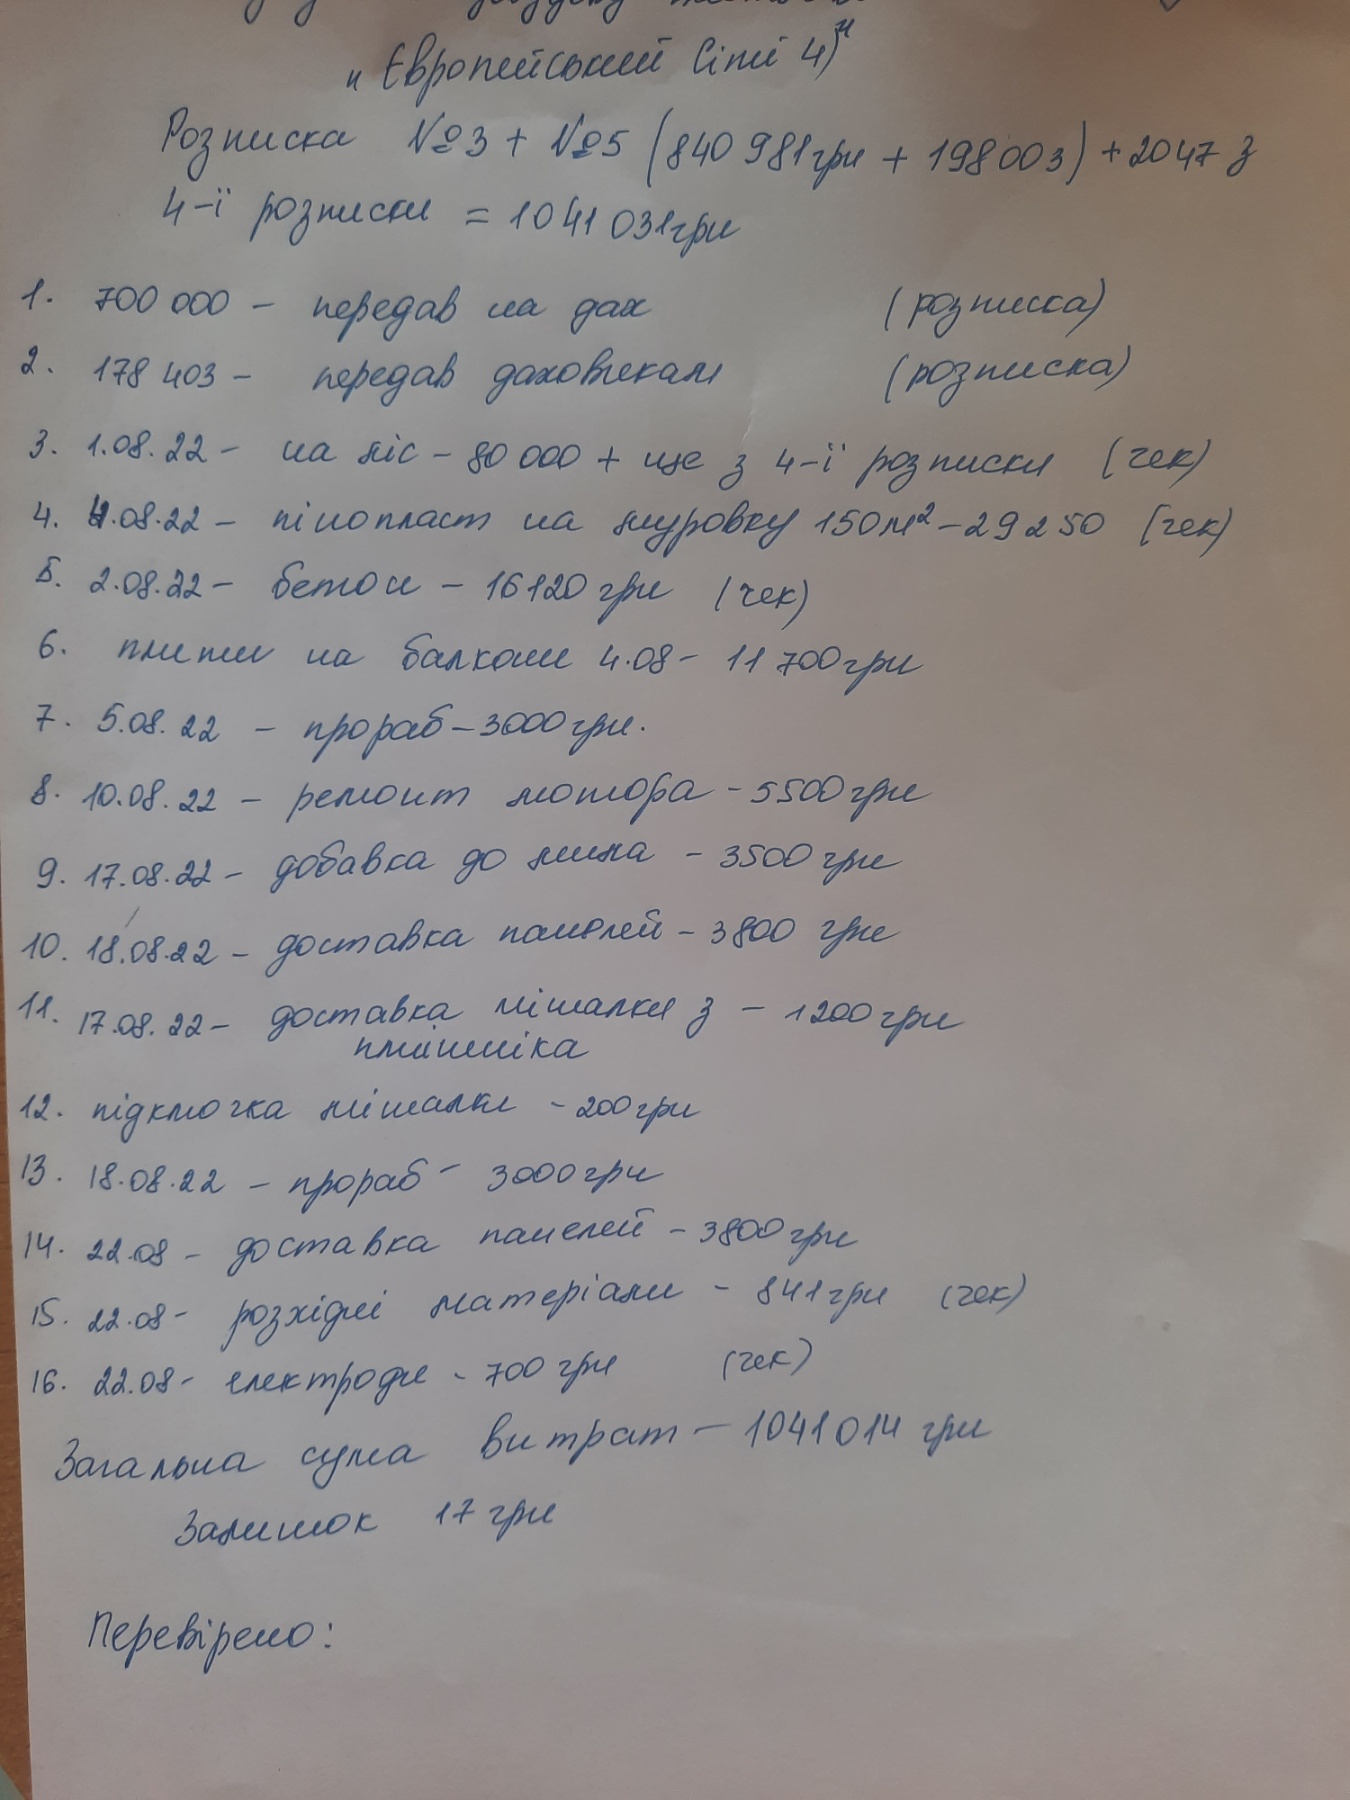 „Європейський Сіті 4)"
Розписка №3 + №5 (840 981грн + 198003) + 2047 з
4-ї розписки = 1041 031грн
1. 700 000 – передав на дах (розписка)
2. 178 403 – передав даховикам (розписка)
3. 1.08.22 – на ліс – 80 000 + ще з 4-ї розписки (чек)
4. 4.08.22 – пінопласт на муровку 150м² – 29250 (чек)
5. 2.08.22 – бетон – 16120 грн (чек)
6. плити на балкони 4.08 – 11 700грн
7. 5.08.22 – прораб – 3000грн.
8. 10.08.22 – ремонт мотора – 5500грн
9. 17.08.22 – добавка до лица – 3500 грн
10. 18.08.22 – доставка панелей – 3800 грн
11. 17.08.22 – доставка мішалки з – 1200грн
12. підключка мішалки – 200грн
13. 18.08.22 – прораб – 3000грн
14. 22.08 – доставка панелей – 3800грн
15. 22.08 – розхідні матеріали – 841грн (чек)
16. 22.08 – електроди – 700 грн (чек)
Загальна сума витрат – 1041014 грн
Залишок 17 грн
Перевірено: